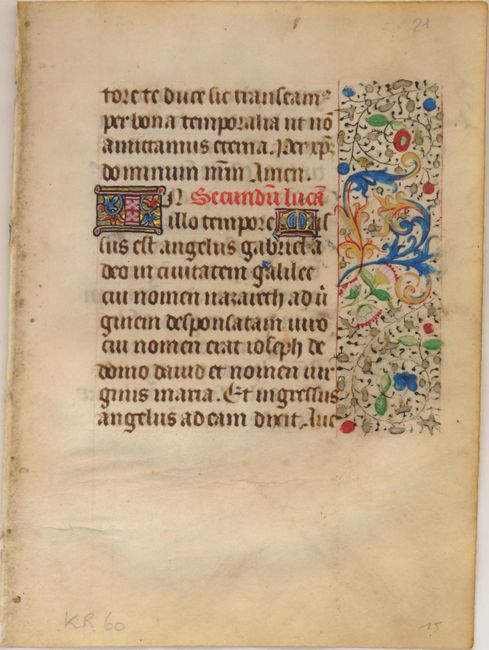 21
tore te duce sic transeam⁹
per bona temporalia ut nō
amittamus eterna. Per xp̄m
dominum nr̄m Amen.
IN Secundū lucā
illo tempore Mis
sus est angelus gabriel a
deo in civitatem galilee
cui nomen nazareth ad v̄
ginem desponsatam viro
cui nomen erat ioseph de
domo david et nomen vir
ginis maria. Et ingressus
angelus ad eam dixit. Ave
K.R. 60
15